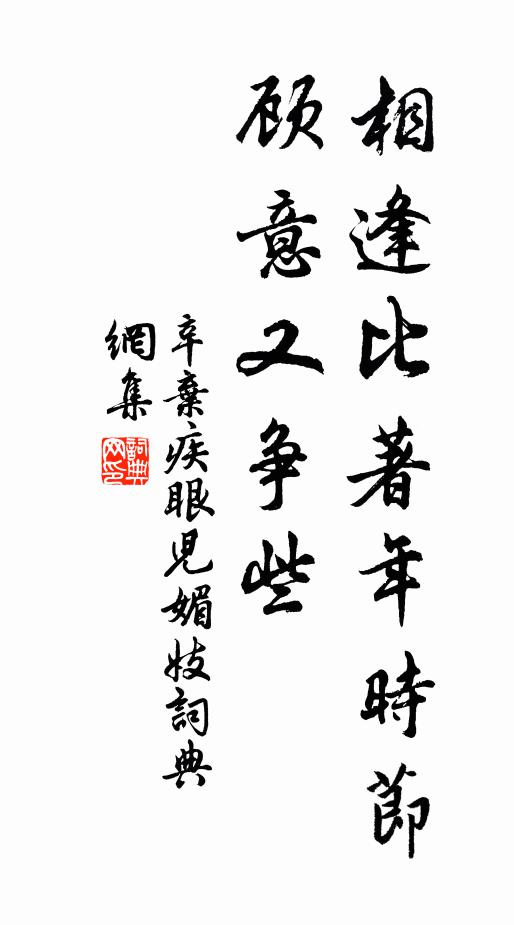 相逢比著年時節
顾意又争些
辛棄疾眼兒媚妓詞典
網集
詞典
网印